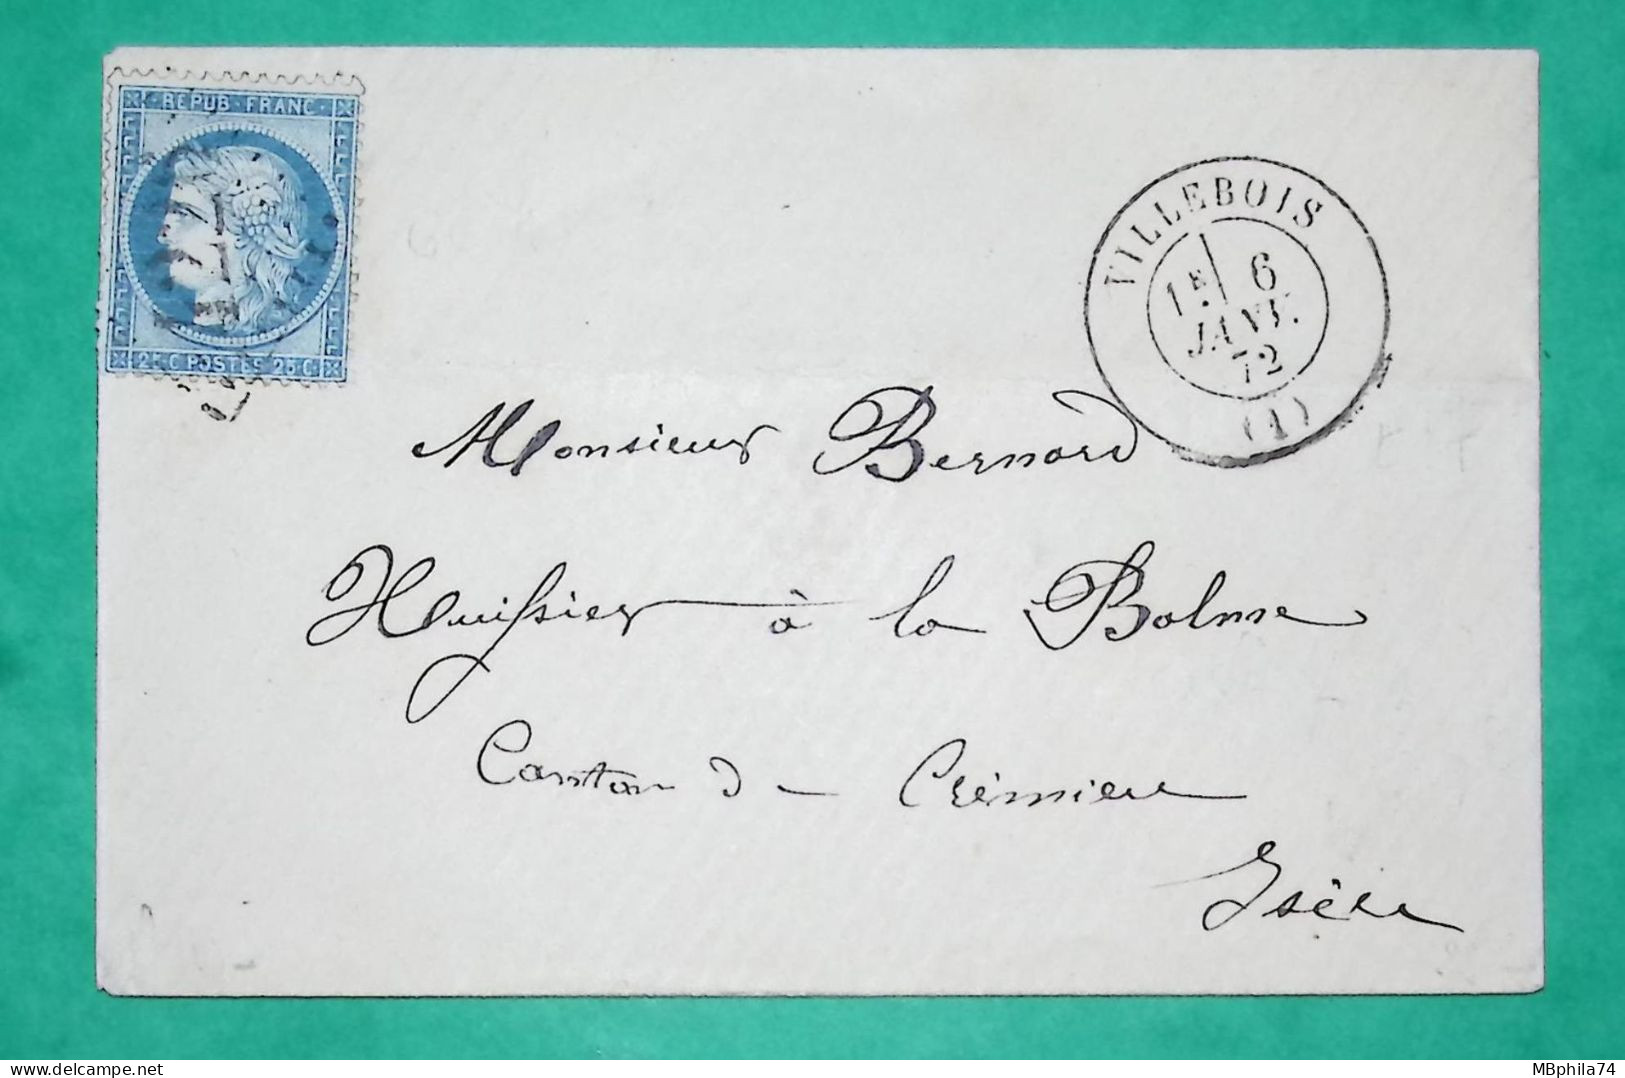 REPUB FRANC
25 C POSTES 25 C
VILLEBOIS
1E 6
JANV.
72
(1)
Monsieur Bernard
Huissier à la Balme
Canton de Crémieu
Isère
MBphila74